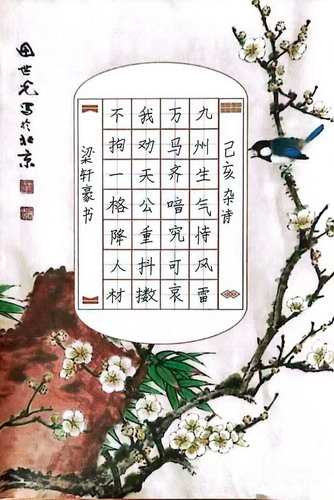 己亥杂诗
九州生气恃风雷
万马齐喑究可哀
我劝天公重抖擞
不拘一格降人材
梁轩豪书
田世光写于北京